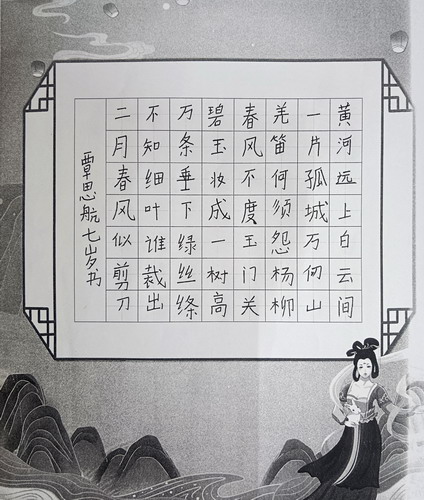 黄河远上白云间
一片孤城万仞山
羌笛何须怨杨柳
春风不度玉门关
碧玉妆成一树高
万条垂下绿丝绦
不知细叶谁裁出
二月春风似剪刀
覃思航七岁书